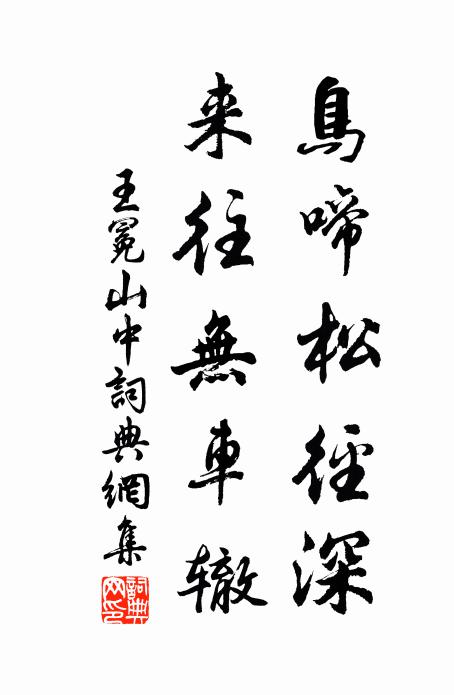 鳥啼松徑深
来往無車轍
王冕山中詞典網集
詞典網印